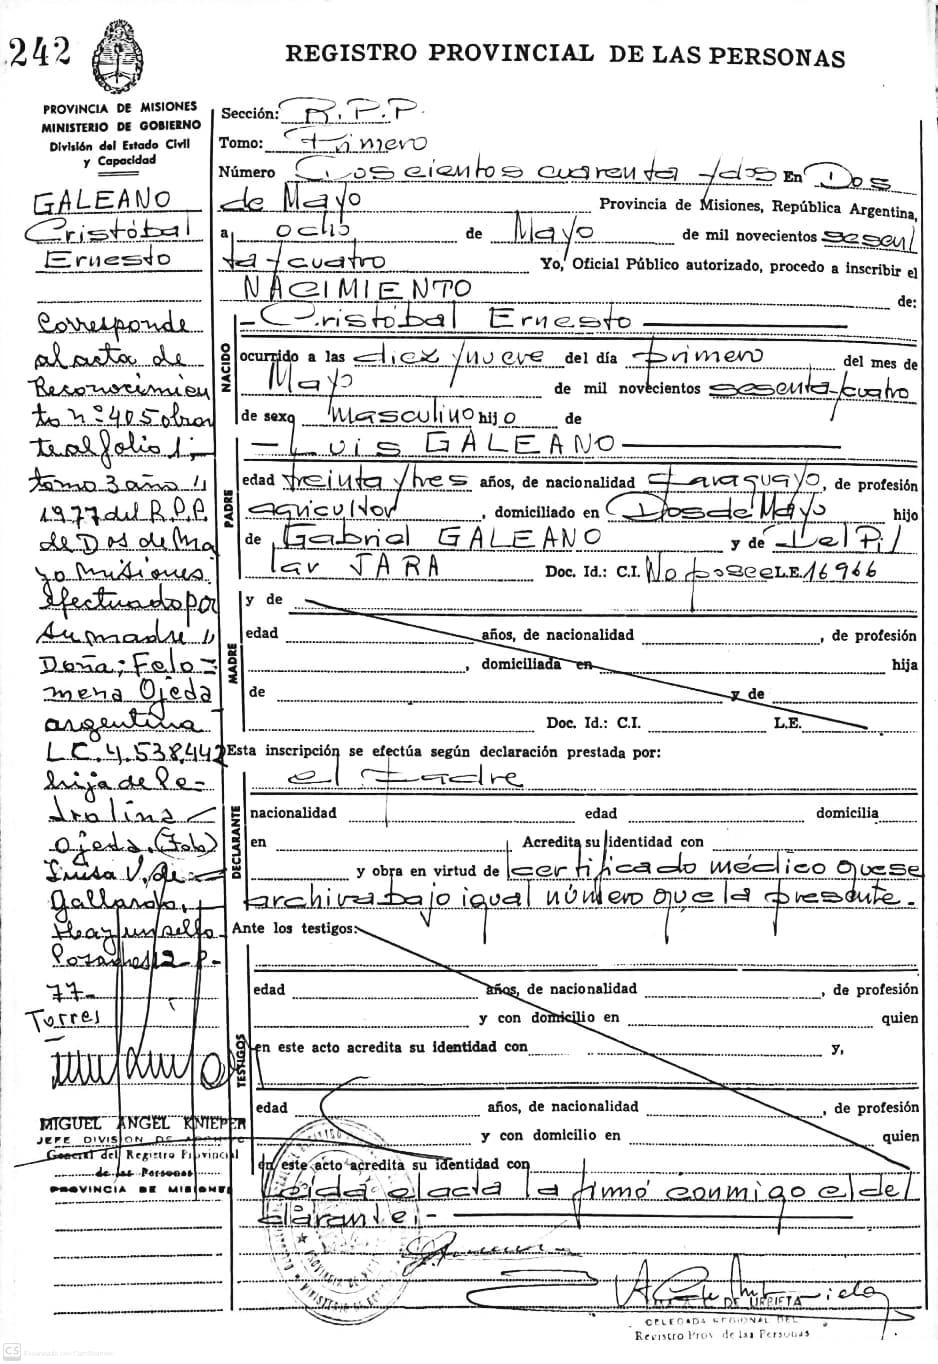 242
REGISTRO PROVINCIAL DE LAS PERSONAS
PROVINCIA DE MISIONES
MINISTERIO DE GOBIERNO
División del Estado Civil
y Capacidad
GALEANO
Cristóbal
Ernesto
Corresponde
al acta de
Reconocimien
to nº 405 obran
te al folio 1;
tomo 3 año
1977 del R.P.P.
de Dos de Ma
yo Misiones
Efectuado por
su madre
Doña; Felo-
mena Ojeda
argentina
LC. 4.538.442
hija de Pe-
trolina
Ojeda. (Fdo)
Luisa V. de
Gallardo.
Hay un sello
Posadas 12-P-
77-
Torres
MIGUEL ANGEL KNIEPER
JEFE DIVISION DE
General del Registro Provincial
de las Personas
PROVINCIA DE MISIONES
Sección: R.P.P.
Tomo: Primero
Número Doscientos cuarenta y dos En Dos
de Mayo Provincia de Misiones, República Argentina,
a ocho de Mayo de mil novecientos sesen
ta y cuatro Yo, Oficial Público autorizado, procedo a inscribir el
NACIMIENTO de:
NACIDO
Cristóbal Ernesto
ocurrido a las diez y nueve del día primero del mes de
Mayo de mil novecientos sesenta y cuatro
de sexo masculino hijo de
PADRE
Luis GALEANO
edad treinta y tres años, de nacionalidad Paraguayo, de profesión
agricultor, domiciliado en Dos de Mayo hijo
de Gabriel GALEANO y de Del Pi
lar JARA Doc. Id.: C.I. No posee L.E. 16966
MADRE
y de
edad años, de nacionalidad , de profesión
, domiciliada en hija
de y de
Doc. Id.: C.I. L.E.
Esta inscripción se efectúa según declaración prestada por:
DECLARANTE
el Padre
nacionalidad edad domicilia
en Acredita su identidad con
y obra en virtud de certificado médico que se
archiva bajo igual número que la presente.
Ante los testigos:
TESTIGOS
edad años, de nacionalidad , de profesión
y con domicilio en quien
en este acto acredita su identidad con y,
edad años, de nacionalidad , de profesión
y con domicilio en quien
en este acto acredita su identidad con
Leida el acta la firmó conmigo el de
clarante.-
DE URRIETA
DELEGADA REGIONAL DEL
Registro Prov. de las Personas
CS